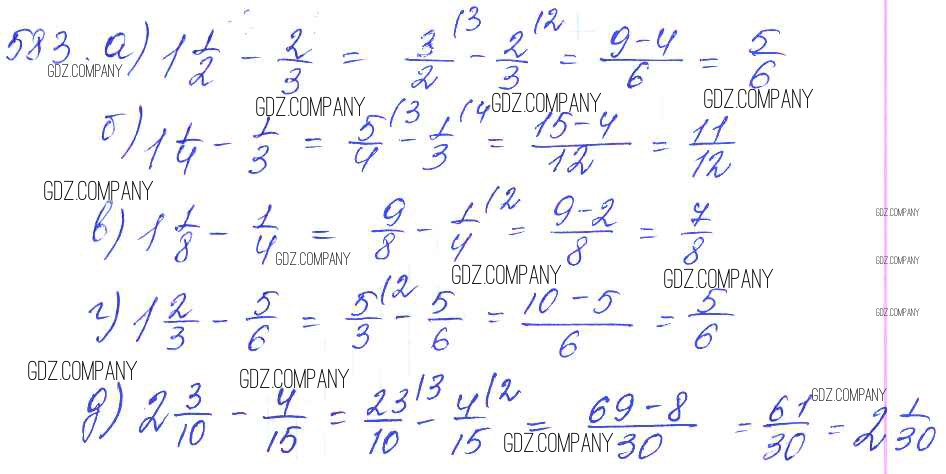 583. а) 1 1/2 - 2/3 = 3/2 (3 - 2/3 (2 = 9-4/6 = 5/6
GDZ.COMPANY
GDZ.COMPANY GDZ.COMPANY GDZ.COMPANY
б) 1 1/4 - 1/3 = 5/4 (3 - 1/3 (4 = 15-4/12 = 11/12
GDZ.COMPANY
в) 1 1/8 - 1/4 = 9/8 - 1/4 (2 = 9-2/8 = 7/8
GDZ.COMPANY
GDZ.COMPANY
GDZ.COMPANY
GDZ.COMPANY GDZ.COMPANY
г) 1 2/3 - 5/6 = 5/3 (2 - 5/6 = 10-5/6 = 5/6
GDZ.COMPANY
GDZ.COMPANY GDZ.COMPANY
д) 2 3/10 - 4/15 = 23/10 (3 - 4/15 (2 = 69-8/30 = 61/30 = 2 1/30
GDZ.COMPANY
GDZ.COMPANY